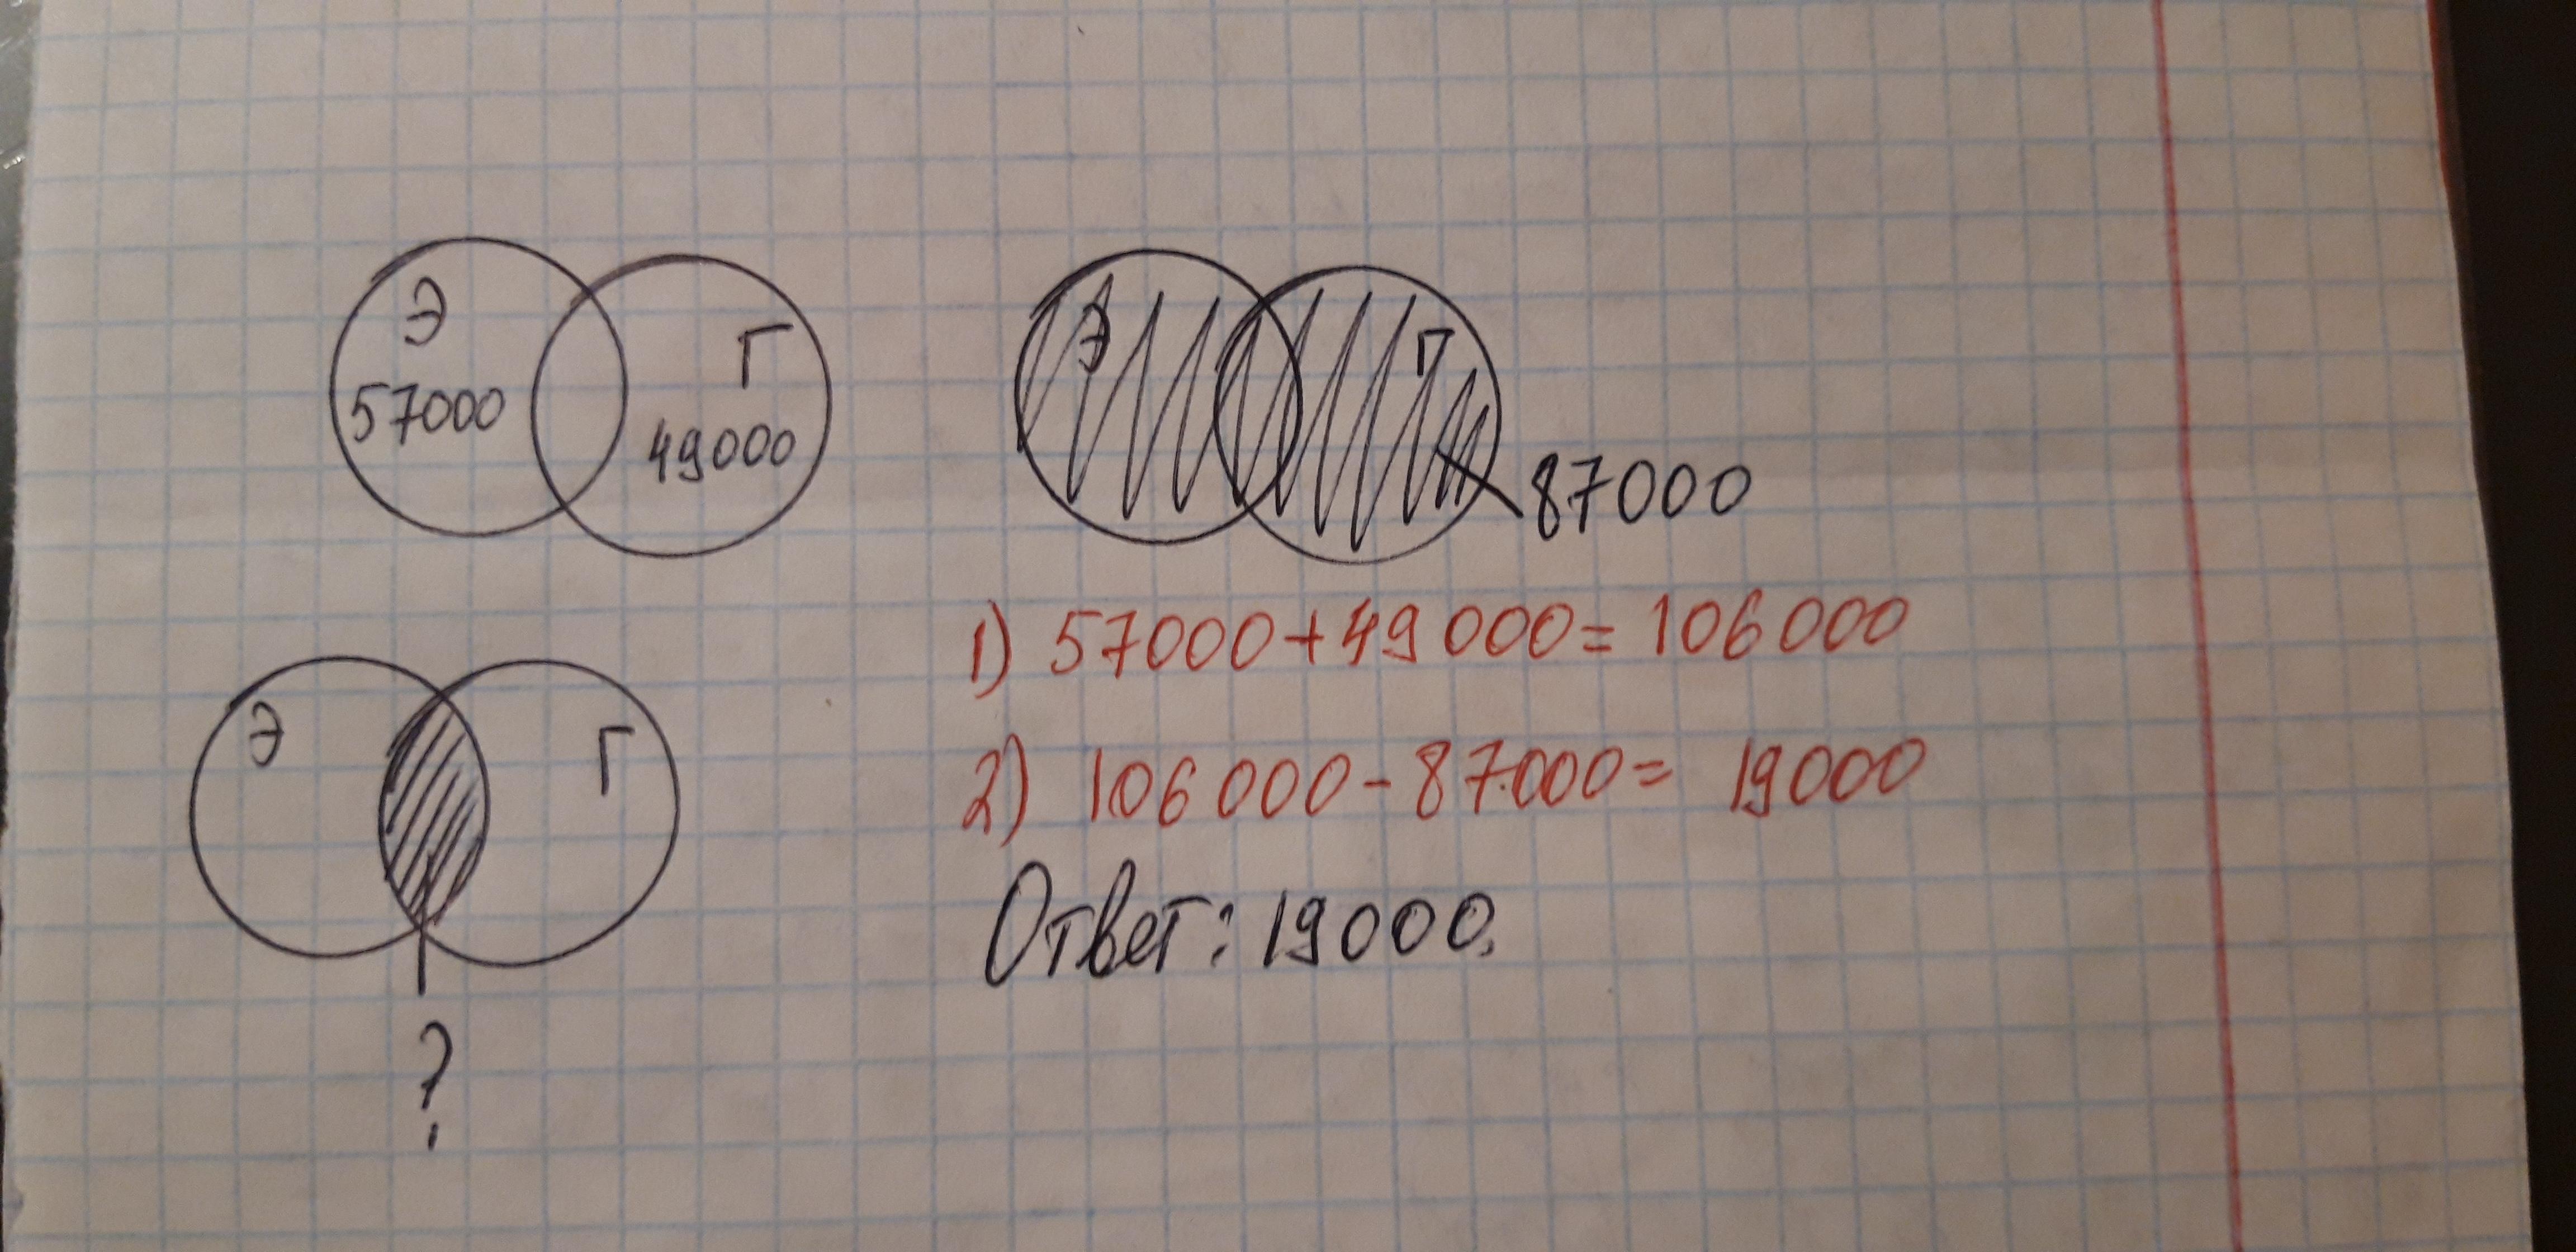 Э
57000
Г
49000
Э
Г
87000
1) 57000+49000=106000
2) 106000-87000=19000
Ответ: 19000.
Э
Г
?